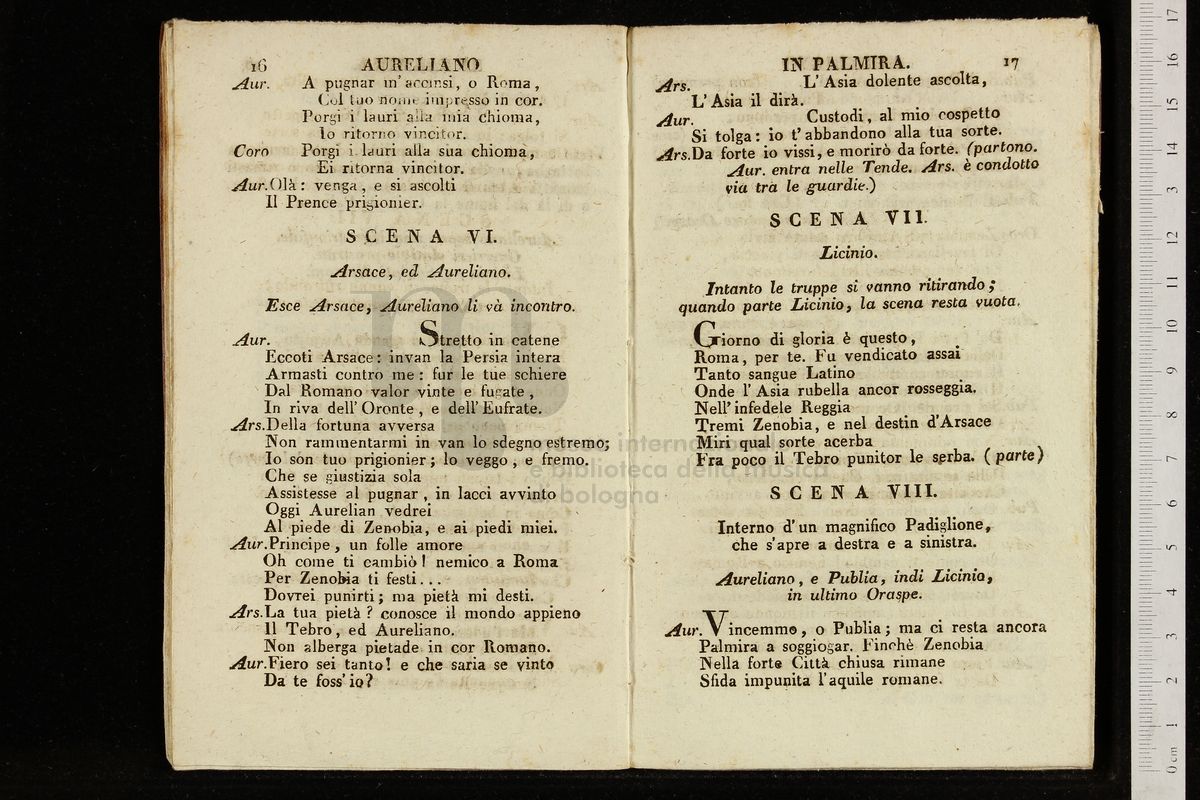 16 AURELIANO
Aur. A pugnar m'accinsi, o Roma,
Col tuo nome impresso in cor.
Porgi i lauri alla mia chioma,
Io ritorno vincitor.
Coro Porgi i lauri alla sua chioma,
Ei ritorna vincitor.
Aur. Olà: venga, e si ascolti
Il Prence prigionier.
SCENA VI.
Arsace, ed Aureliano.
Esce Arsace, Aureliano li và incontro.
Aur. Stretto in catene
Eccoti Arsace: invan la Persia intera
Armasti contro me: fur le tue schiere
Dal Romano valor vinte e fugate,
In riva dell'Oronte, e dell'Eufrate.
Ars. Della fortuna avversa
Non rammentarmi in van lo sdegno estremo;
Io son tuo prigionier; lo veggo, e fremo.
Che se giustizia sola
Assistesse al pugnar, in lacci avvinto
Oggi Aurelian vedrei
Al piede di Zenobia, e ai piedi miei.
Aur. Principe, un folle amore
Oh come ti cambiò! nemico a Roma
Per Zenobia ti festi...
Dovrei punirti; ma pietà mi desti.
Ars. La tua pietà? conosce il mondo appieno
Il Tebro, ed Aureliano.
Non alberga pietade in cor Romano.
Aur. Fiero sei tanto! e che saria se vinto
Da te foss'io?
IN PALMIRA. 17
Ars. L'Asia dolente ascolta,
L'Asia il dirà.
Aur. Custodi, al mio cospetto
Si tolga: io t'abbandono alla tua sorte.
Ars. Da forte io vissi, e morirò da forte. (partono.
Aur. entra nelle Tende. Ars. è condotto
via tra le guardie.)
SCENA VII.
Licinio.
Intanto le truppe si vanno ritirando;
quando parte Licinio, la scena resta vuota.
Giorno di gloria è questo,
Roma, per te. Fu vendicato assai
Tanto sangue Latino
Onde l'Asia rubella ancor rosseggia.
Nell'infedele Reggia
Tremi Zenobia, e nel destin d'Arsace
Miri qual sorte acerba
Fra poco il Tebro punitor le serba. (parte)
SCENA VIII.
Interno d'un magnifico Padiglione,
che s'apre a destra e a sinistra.
Aureliano, e Publia, indi Licinio,
in ultimo Oraspe.
Aur. Vincemmo, o Publia; ma ci resta ancora
Palmira a soggiogar. Finchè Zenobia
Nella forte Città chiusa rimane
Sfida impunita l'aquile romane.
internazionale
e biblioteca della musica
bologna
0 cm 1 2 3 4 5 6 7 8 9 10 11 12 13 14 15 16 17